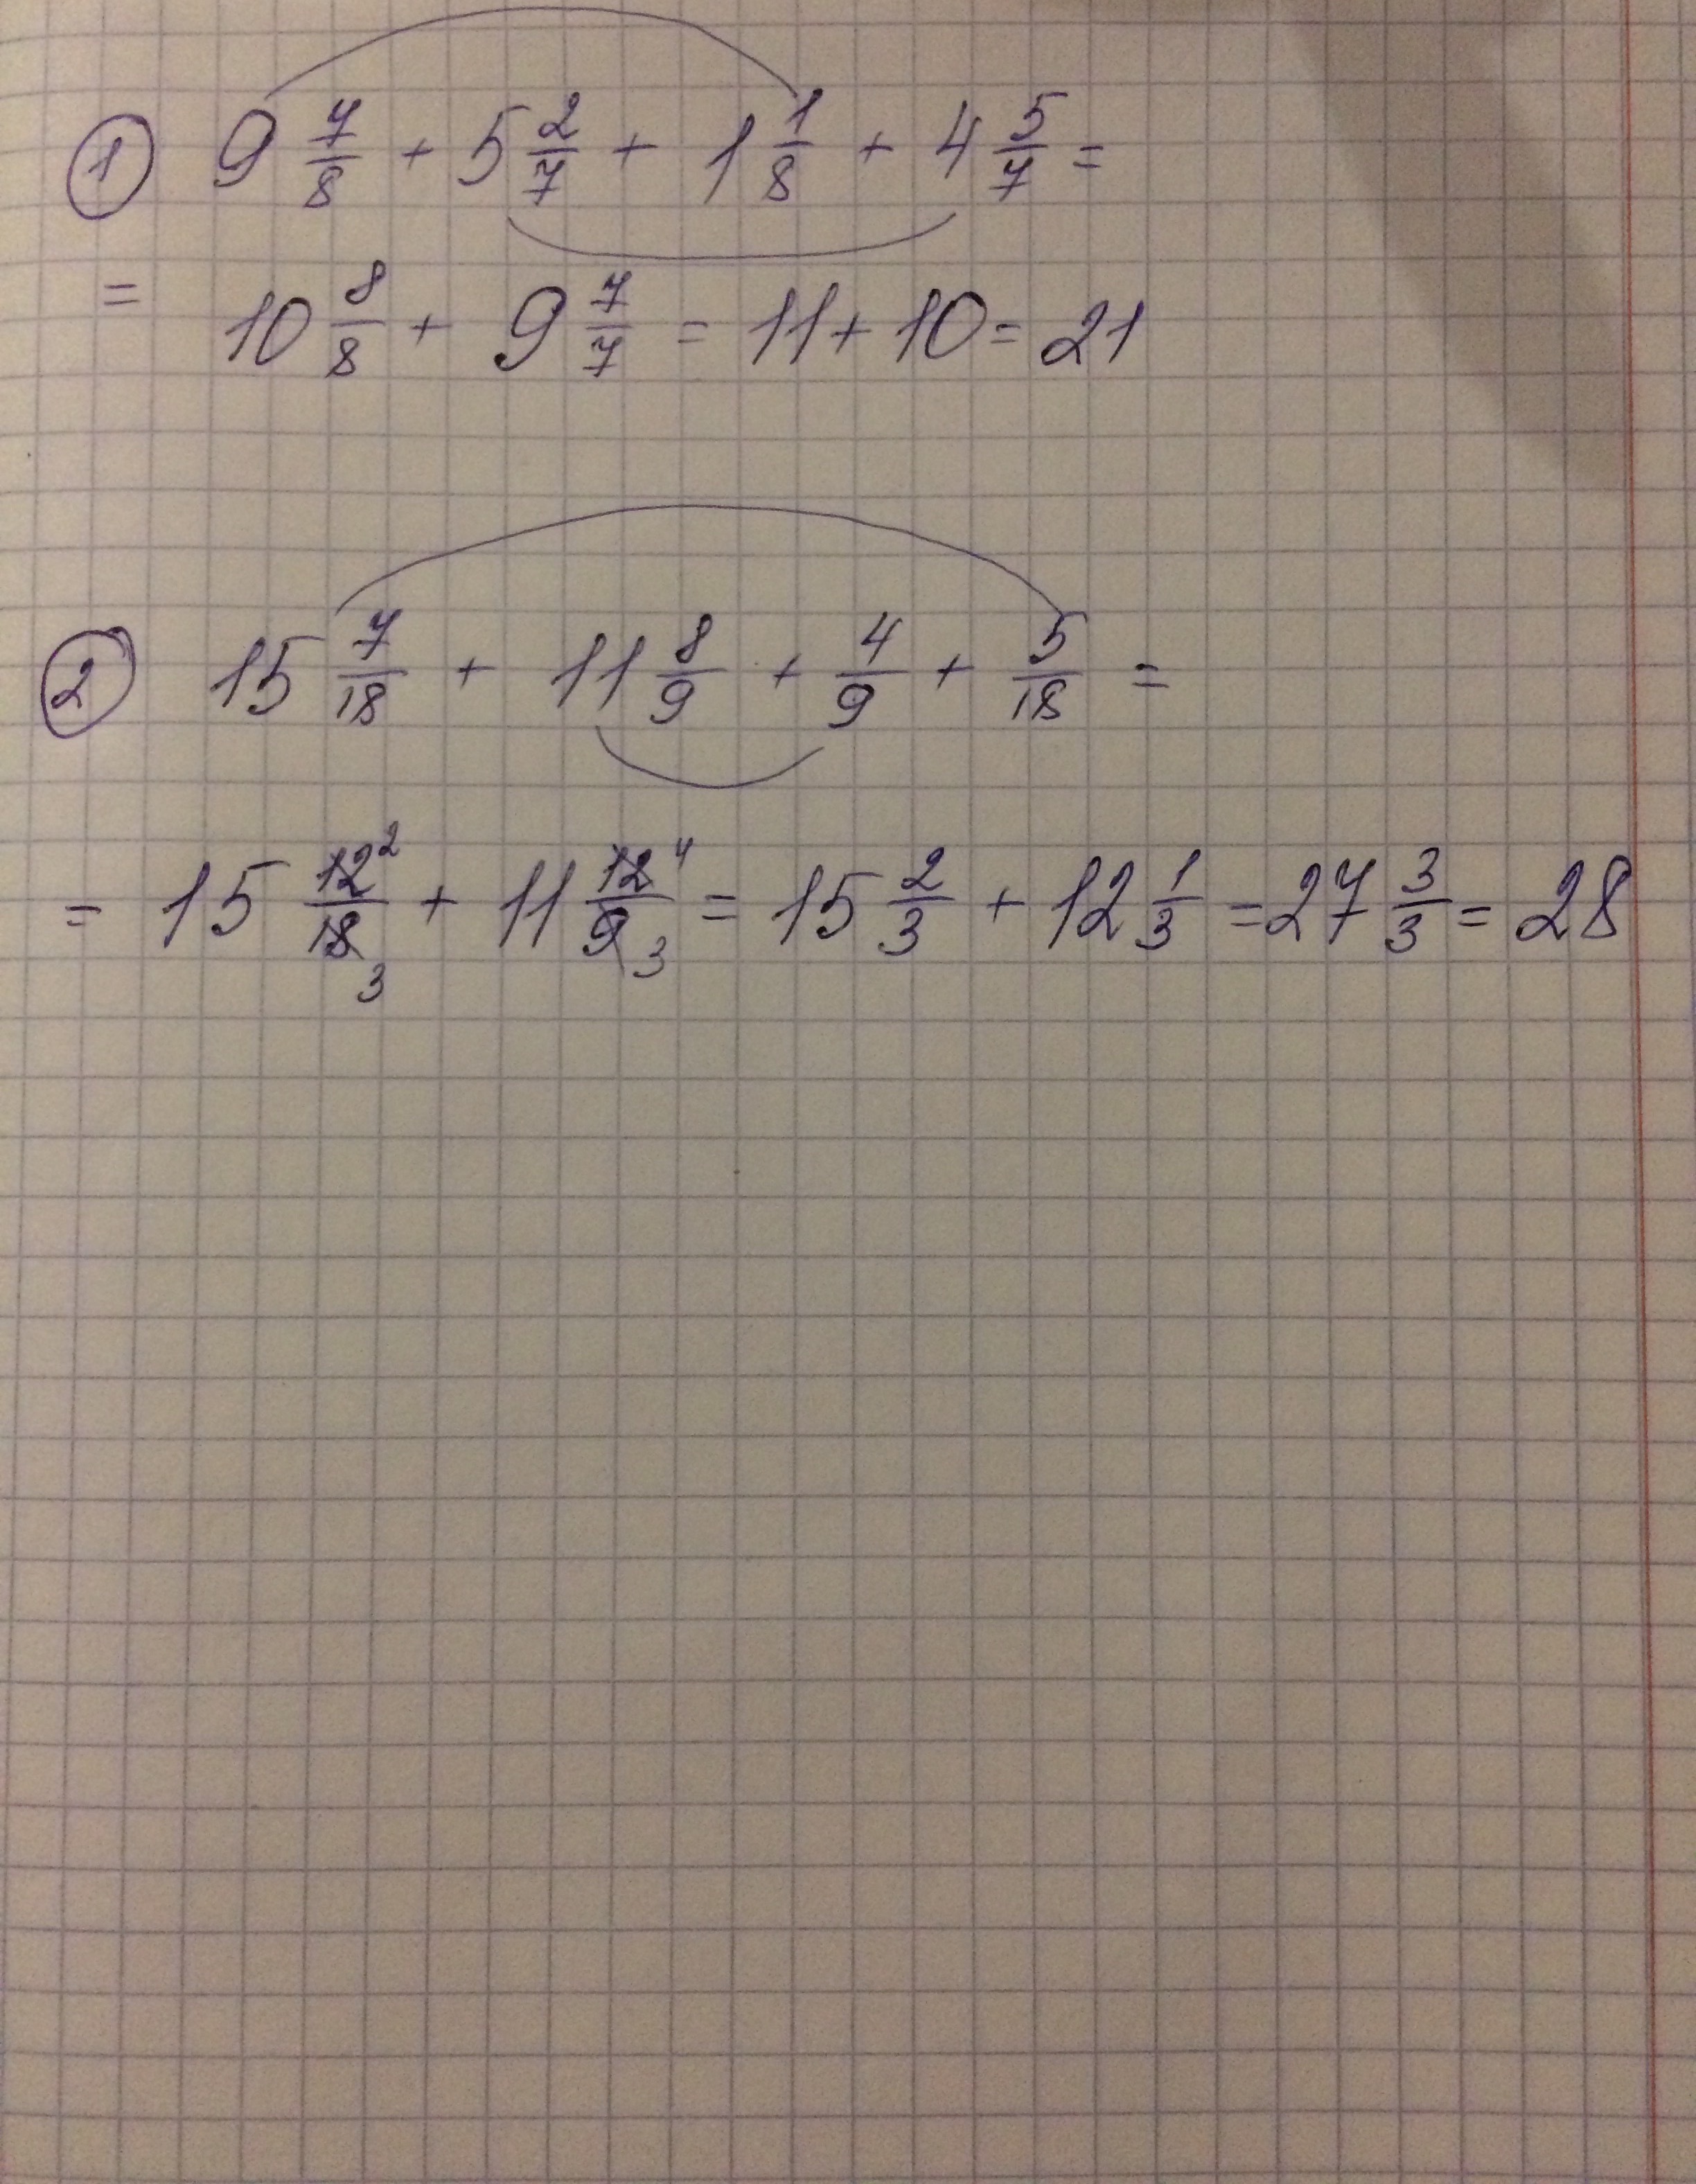 ① 9 7/8 + 5 2/7 + 1 1/8 + 4 5/7 =
= 10 8/8 + 9 7/7 = 11 + 10 = 21
② 15 7/18 + 11 8/9 + 4/9 + 5/18 =
= 15 12²/18₃ + 11 12⁴/9₃ = 15 2/3 + 12 1/3 = 27 3/3 = 28